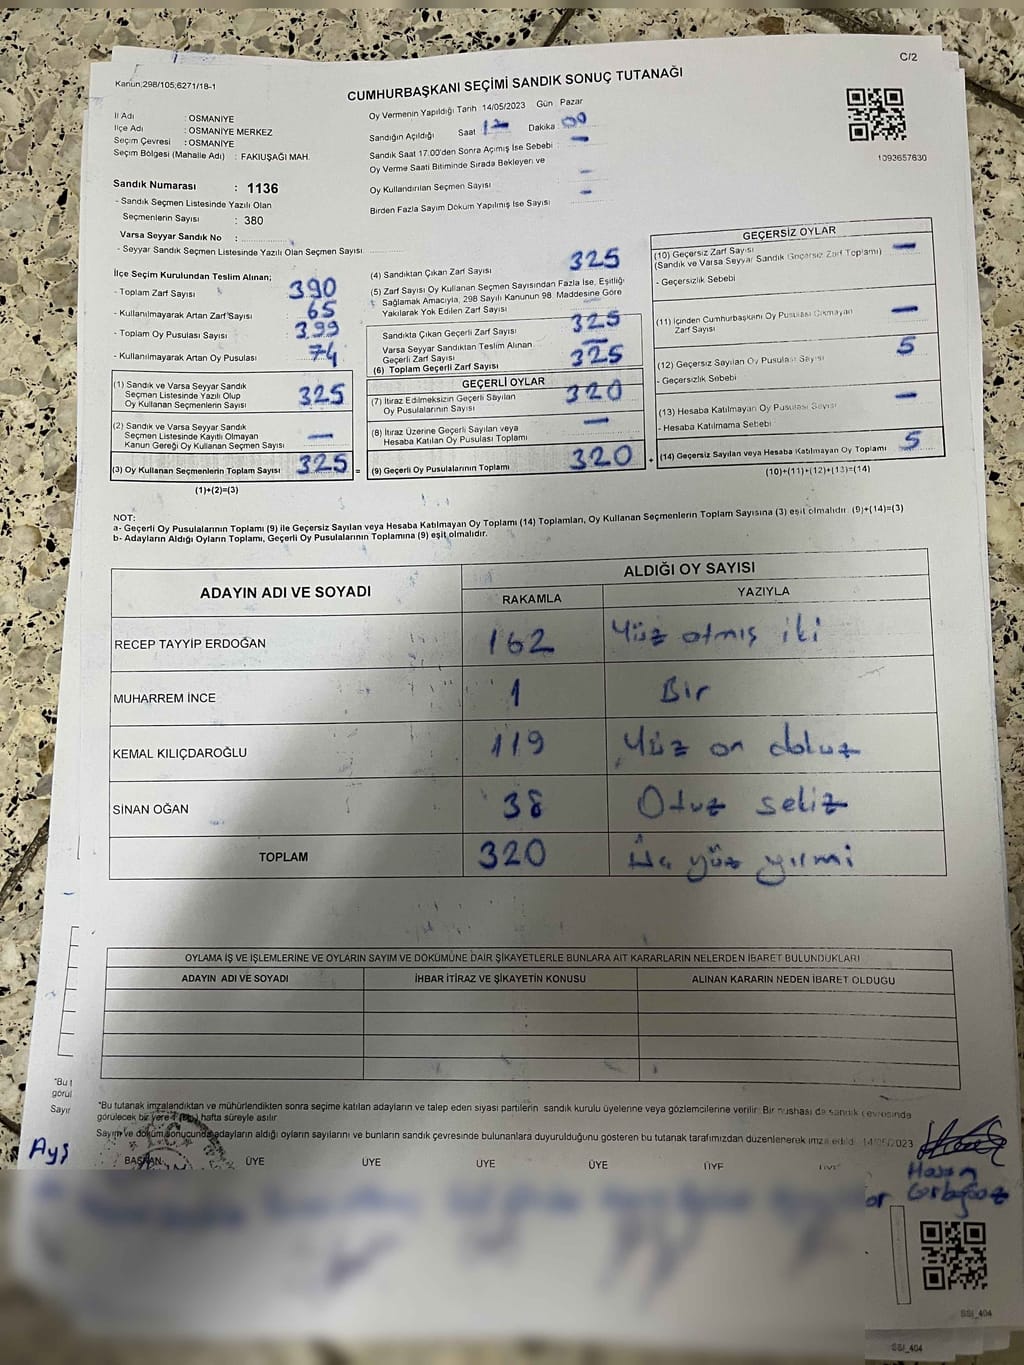 C/2
Kanun,298/105,6271/18-1
CUMHURBAŞKANI SEÇİMİ SANDIK SONUÇ TUTANAĞI
İl Adı : OSMANİYE
İlçe Adı : OSMANİYE MERKEZ
Seçim Çevresi : OSMANİYE
Seçim Bölgesi (Mahalle Adı) : FAKIUŞAĞI MAH.
Oy Vermenin Yapıldığı Tarih 14/05/2023 Gün Pazar
Sandığın Açıldığı Saat Dakika 00
Sandık Saat 17:00'den Sonra Açımış İse Sebebi : -
Oy Verme Saati Bitiminde Sırada Bekleyen ve
Oy Kullandırılan Seçmen Sayısı -
Birden Fazla Sayım Döküm Yapılmış İse Sayısı -
1093657630
Sandık Numarası : 1136
- Sandık Seçmen Listesinde Yazılı Olan
Seçmenlerin Sayısı : 380
Varsa Seyyar Sandık No :
- Seyyar Sandık Seçmen Listesinde Yazılı Olan Seçmen Sayısı
İlçe Seçim Kurulundan Teslim Alınan;
- Toplam Zarf Sayısı 390
- Kullanılmayarak Artan Zarf Sayısı 65
- Toplam Oy Pusulası Sayısı 399
- Kullanılmayarak Artan Oy Pusulası 74
(1) Sandık ve Varsa Seyyar Sandık
Seçmen Listesinde Yazılı Olup
Oy Kullanan Seçmenlerin Sayısı 325
(2) Sandık ve Varsa Seyyar Sandık
Seçmen Listesinde Kayıtlı Olmayan
Kanun Gereği Oy Kullanan Seçmen Sayısı -
(3) Oy Kullanan Seçmenlerin Toplam Sayısı 325 =
(1)+(2)=(3)
(4) Sandıktan Çıkan Zarf Sayısı 325
(5) Zarf Sayısı Oy Kullanan Seçmen Sayısından Fazla İse, Eşitliği
Sağlamak Amacıyla, 298 Sayılı Kanunun 98. Maddesine Göre
Yakılarak Yok Edilen Zarf Sayısı
Sandıkta Çıkan Geçerli Zarf Sayısı 325
Varsa Seyyar Sandıktan Teslim Alınan
Geçerli Zarf Sayısı -
(6) Toplam Geçerli Zarf Sayısı 325
GEÇERLİ OYLAR
(7) İtiraz Edilmeksizin Geçerli Sayılan
Oy Pusulalarının Sayısı 320
(8) İtiraz Üzerine Geçerli Sayılan veya
Hesaba Katılan Oy Pusulası Toplamı -
(9) Geçerli Oy Pusulalarının Toplamı 320 +
GEÇERSİZ OYLAR
(10) Geçersiz Zarf Sayısı -
(Sandık ve Varsa Seyyar Sandık Geçersiz Zarf Toplamı)
- Geçersizlik Sebebi
(11) İçinden Cumhurbaşkanı Oy Pusulası Çıkmayan
Zarf Sayısı -
(12) Geçersiz Sayılan Oy Pusulası Sayısı 5
- Geçersizlik Sebebi
(13) Hesaba Katılmayan Oy Pusulası Sayısı -
- Hesaba Katılmama Sebebi
(14) Geçersiz Sayılan veya Hesaba Katılmayan Oy Toplamı 5
(10)+(11)+(12)+(13)=(14)
NOT:
a- Geçerli Oy Pusulalarının Toplamı (9) ile Geçersiz Sayılan veya Hesaba Katılmayan Oy Toplamı (14) Toplamları, Oy Kullanan Seçmenlerin Toplam Sayısına (3) eşit olmalıdır. (9)+(14)=(3)
b- Adayların Aldığı Oyların Toplamı, Geçerli Oy Pusulalarının Toplamına (9) eşit olmalıdır.
ADAYIN ADI VE SOYADI
ALDIĞI OY SAYISI
RAKAMLA YAZIYLA
RECEP TAYYİP ERDOĞAN 162 Yüz atmış iki
MUHARREM İNCE 1 Bir
KEMAL KILIÇDAROĞLU 119 Yüz on dokuz
SİNAN OĞAN 38 Otuz sekiz
TOPLAM 320 Üç yüz yirmi
OYLAMA İŞ VE İŞLEMLERİNE VE OYLARIN SAYIM VE DÖKÜMÜNE DAİR ŞİKAYETLERLE BUNLARA AİT KARARLARIN NELERDEN İBARET BULUNDUKLARI
ADAYIN ADI VE SOYADI İHBAR İTİRAZ VE ŞİKAYETİN KONUSU ALINAN KARARIN NEDEN İBARET OLDUĞU
*Bu t
görül
Sayır
*Bu tutanak imzalandıktan ve mühürlendikten sonra seçime katılan adayların ve talep eden siyasi partilerin sandık kurulu üyelerine veya gözlemcilerine verilir. Bir nüshası da sandık çevresinde
görülecek bir yere 1 (Bir) hafta süreyle asılır.
Sayım ve döküm sonucunda adayların aldığı oyların sayılarını ve bunların sandık çevresinde bulunanlara duyurulduğunu gösteren bu tutanak tarafımızdan düzenlenerek imza edildi. 14/05/2023
Ayş
BAŞKAN ÜYE ÜYE ÜYE ÜYE ÜYE ÜYE
Hasan
SSİ_404
SSİ_404